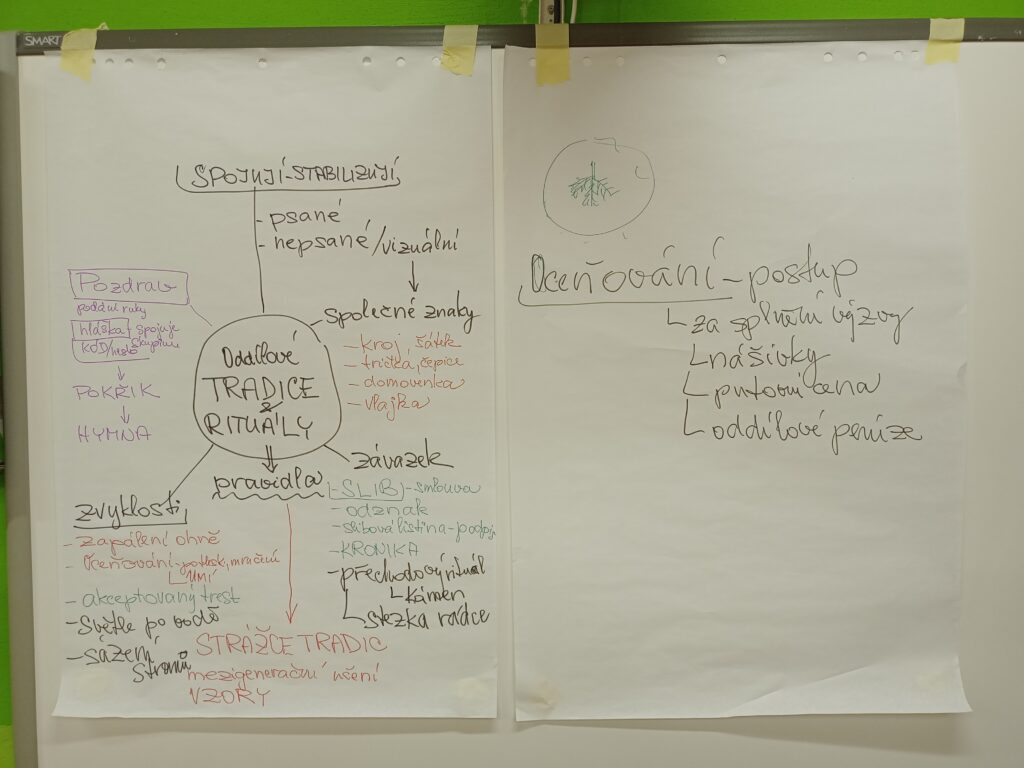 SMART
SPOJUJÍ-STABILIZUJÍ
- psané
- nepsané/vizuální
Společné znaky
- kroj, šátek
- trička, čepice
- domovenka
- vlajka
Pozdrav
podání ruky
hláška spojuje
KÓD/heslo skupinu
POKŘIK
HYMNA
Oddílové
TRADICE
&
RITUÁLY
pravidla
závazek
- SLIB - smlouva
- odznak
- slibová listina - podpis
- KRONIKA
- přechodový rituál
kámen
stezka rádce
zvyklosti
- zapálení ohně
- Oceňování - potlesk, mručení
UMÍ
- akceptovaný trest
- Světle po vodě
- sázení
stromů
STRÁŽCE TRADIC
mezigenerační
VZORY
Oceňování - postup
za splnění výzvy
nášivky
putovní cena
oddílové peníze